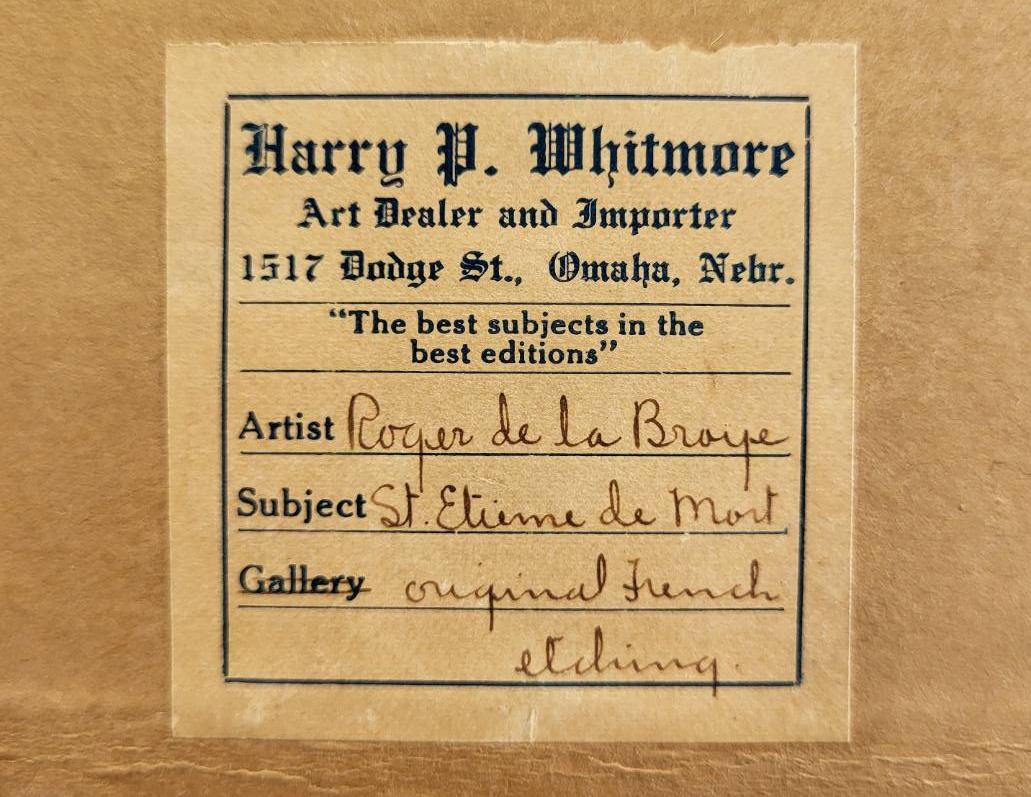 Harry P. Whitmore
Art Dealer and Importer
1517 Dodge St., Omaha, Nebr.
“The best subjects in the
best editions”
Artist Roger de la Broye
Subject St. Etienne de Mort
Gallery original French
etching.